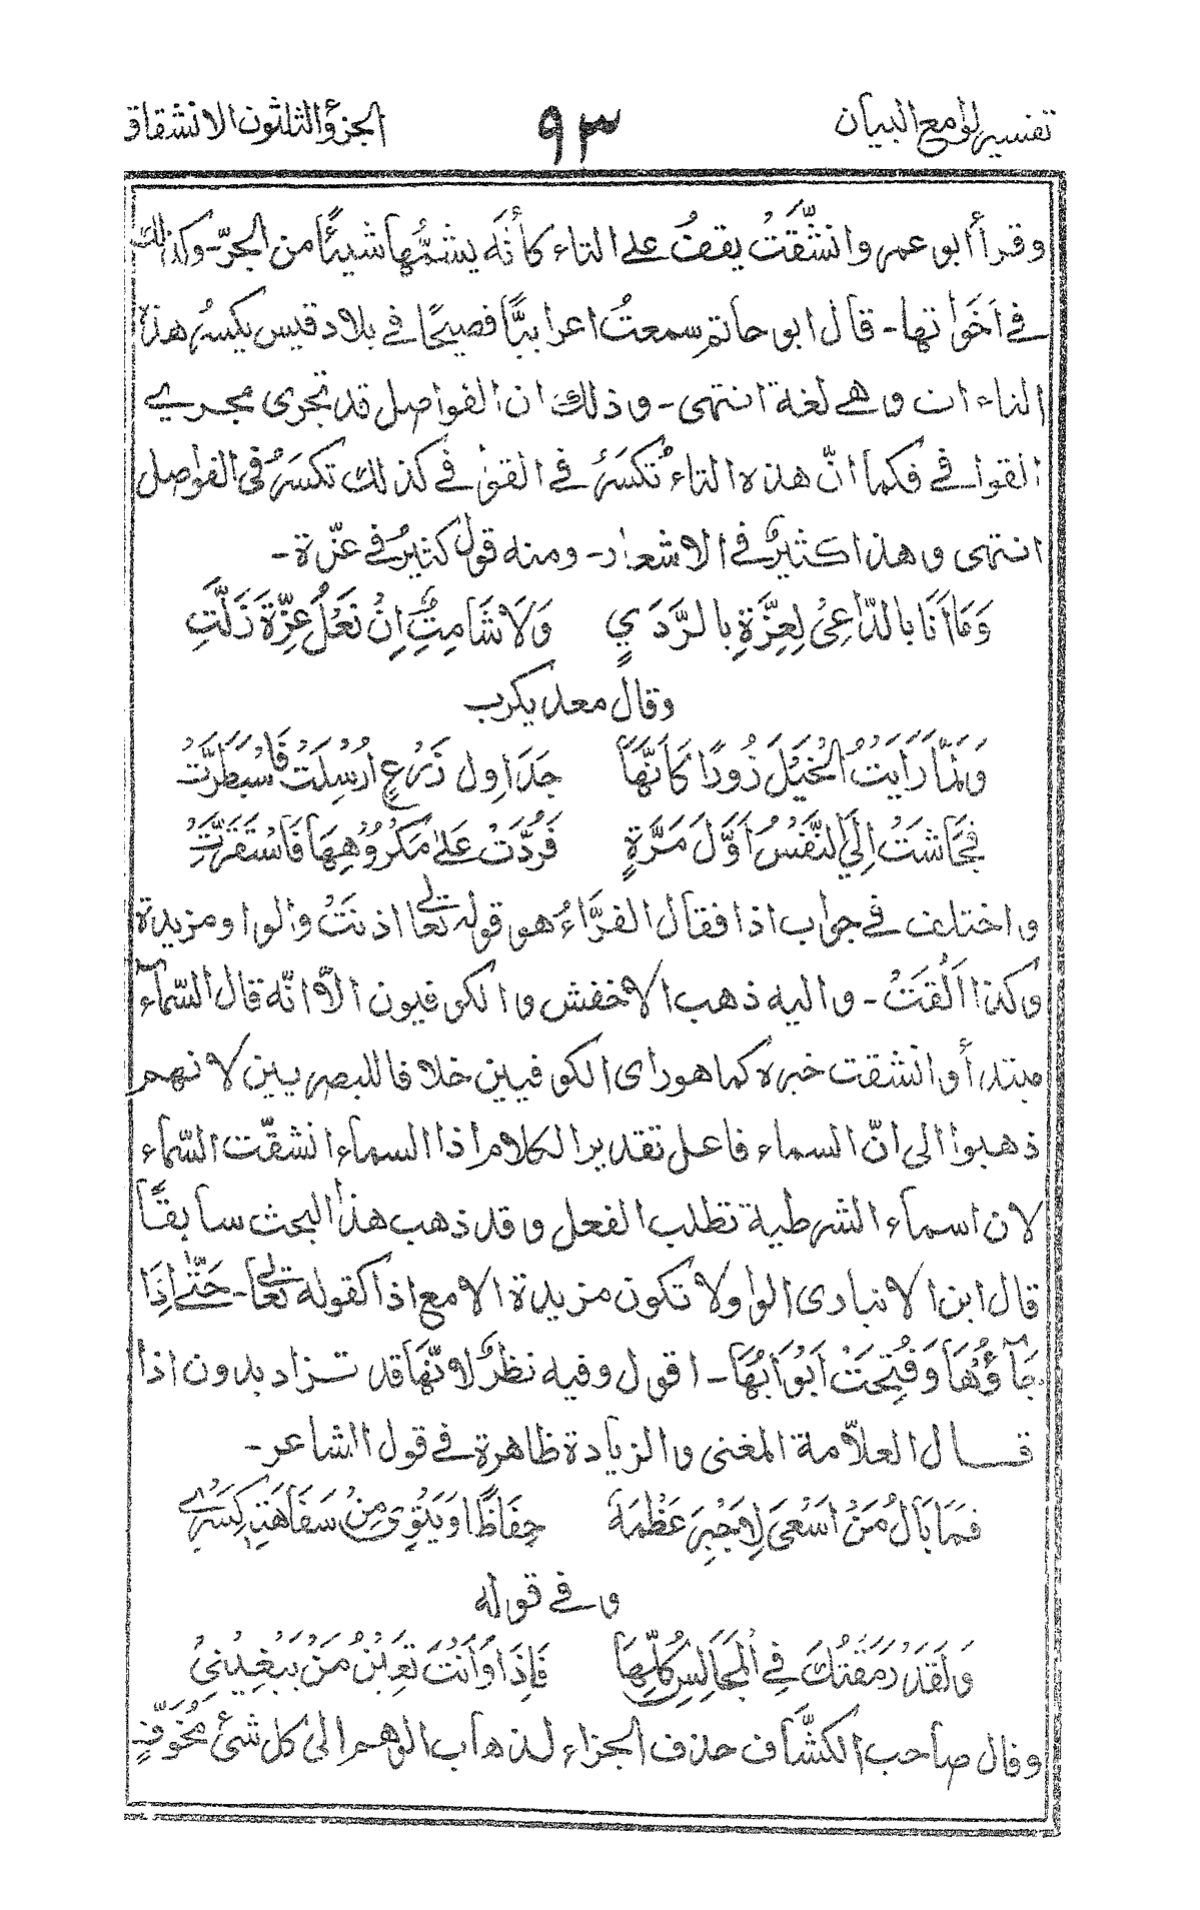 تفسير لوامع البيان ٩٣ الجزؤ الثلثون الانشقاق
وقرأ أبو عمر وانشَّقَتْ يقفُ على التاء كأنَّه يشمُّها شيئًا من الجرّ - وكذلك
في اَخَواتها - قال ابو حاتم سمعتُ اعرابيًّا فصيحًا في بلاد قيس يكسرُ هذه
التاء ات وهے لغة انتهى - وذلك ان الفواصل قد تجرى مجرے
القوافي فكما انّ هذه التاءُ تكسَرُ في القوٰفي كذلك تكسَرُ فى الفواصل
انتهى وهذا كثيرٌ في الاشعار - ومنه قول كثيرٌ في عزّة -
وَمَا اَنَا بالدّاعِىْ لِعِزَّةِ بِالرَّدَىٰ وَلَا شَامِتٌ اِنْ نَعْلُ عِزَّةَ زَلَّتِ
وقال معديكرب
وَلَمّا رَاَيْتُ الْخَيْلَ زُورًا كَاَنَّهَا جَدَاوِل زَرْعٍ اُرْسِلَتْ فَاسْبَطَرَّتْ
فجَاشَتْ اِلَيَّ النَّفْسُ اَوَّلَ مَرَّةٍ فَرُدَّتْ عَلىٰ مَكْرُوْهِهَا فَاسْتَقَرَّتِ
واختلف في جواب اذا فقال الفرَّاءُ هو قوله تعالى اذنَتْ والواو مزيدة
وكذا اَلْقَتْ - واليه ذهب الاخفش والكوفيون الاّ انّه قال السّمآء
مبتدأ وانشقت خبره كما هو رأى الكوفيين خلافا للبصريين لانهم
ذهبوا الى انّ السماء فاعل تقدير الكلام اذا السماء انشقّت السّماء
لان اسماء الشرطية تطلب الفعل وقد ذهب هذا البحث سابقًا
قال ابن الانبارى الواو لا تكون مزيدة الا مع اذا كقوله تعالى - حَتّٰى اِذَا
جَآؤُهَا وَفُتِحَتْ اَبْوَابُهَا - اقول وفيه نظرٌ لانّها قد تزاد بدون اذا
قال العلاّمة المغنى والزيادة ظاهرة في قول الشاعر -
فَمَا بَالُ مَنْ اَسْعَىٰ لِاَجْبُرَ عَظْمَهٗ حِفَاظًا وَيَنْوِى مِنْ سَفَاهَتِهٖ كَسْرِے
وفي قوله
وَلَقَدْ رَمَقْتُكَ فِي الْمَجَالِسِ كُلِّهَا فَاِذَا وَاَنْتَ تُعِيْنُ مَنْ يَبْغِيْنِيْ
وقال صاحب الكشَّاف حذف الجزاء لذهاب الوهم الى كل شئ مُخَوِّفٍ